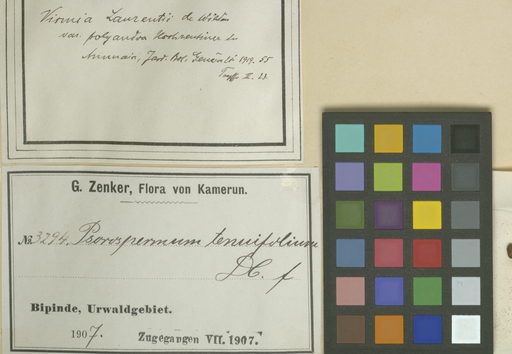 Vismia Laurentii de Wildem
var. polyandra Hochreutiner in
Annuair. Jard. Bot. Genève 1919. 55
II. 23.
G. Zenker, Flora von Kamerun.
№ 3294. Psorospermum tenuifolium
DC. f
Bipinde, Urwaldgebiet.
1907. Zugegangen VII. 1907.